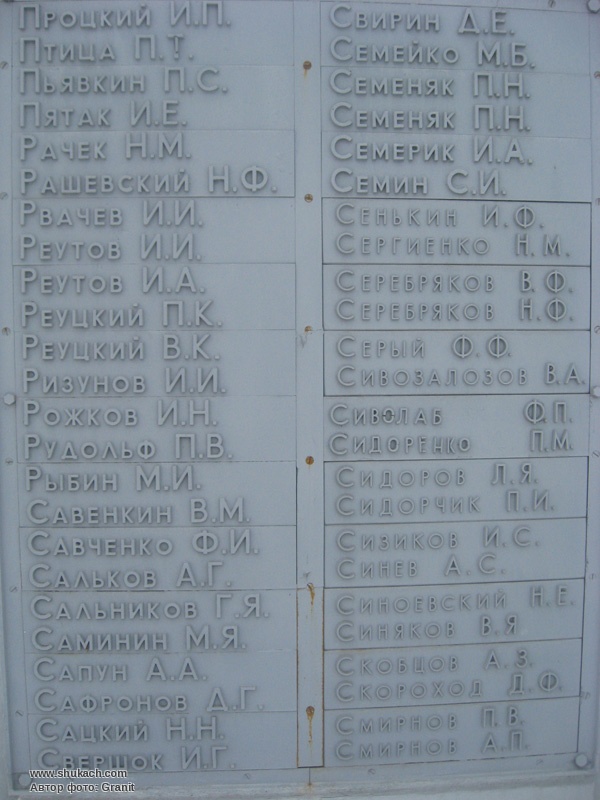 Процкий И.П.
Птица П.Т.
Пьявкин П.С.
Пятак И.Е.
Рачек Н.М.
Рашевский Н.Ф.
Рвачев И.И.
Реутов И.И.
Реутов И.А.
Реуцкий П.К.
Реуцкий В.К.
Ризунов И.И.
Рожков И.Н.
Рудольф П.В.
Рыбин М.И.
Савенкин В.М.
Савченко Ф.И.
Сальков А.Г.
Сальников Г.Я.
Саминин М.Я.
Сапун А.А.
Сафронов Д.Г.
Сацкий Н.Н.
Свершок И.Г.
Свирин Д.Е.
Семейко М.Б.
Семеняк П.Н.
Семеняк П.Н.
Семерик И.А.
Семин С.И.
Сенькин И.Ф.
Сергиенко Н.М.
Серебряков В.Ф.
Серебряков Н.Ф.
Серый Ф.Ф.
Сивозалозов В.А.
Сиволаб Ф.П.
Сидоренко П.М.
Сидоров Л.Я.
Сидорчик П.И.
Сизиков И.С.
Синев А.С.
Синоевский Н.Е.
Синяков В.Я
Скобцов А.З.
Скороход Д.Ф.
Смирнов П.В.
Смирнов А.П.
www.shukach.com
Автор фото: Granit